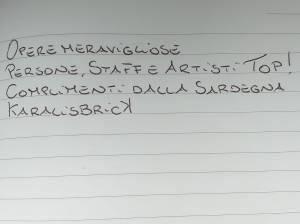 OPERE MERAVIGLIOSE
PERSONE, STAFF E ARTISTI TOP!
COMPLIMENTI DALLA SARDEGNA
KARALISBRICK